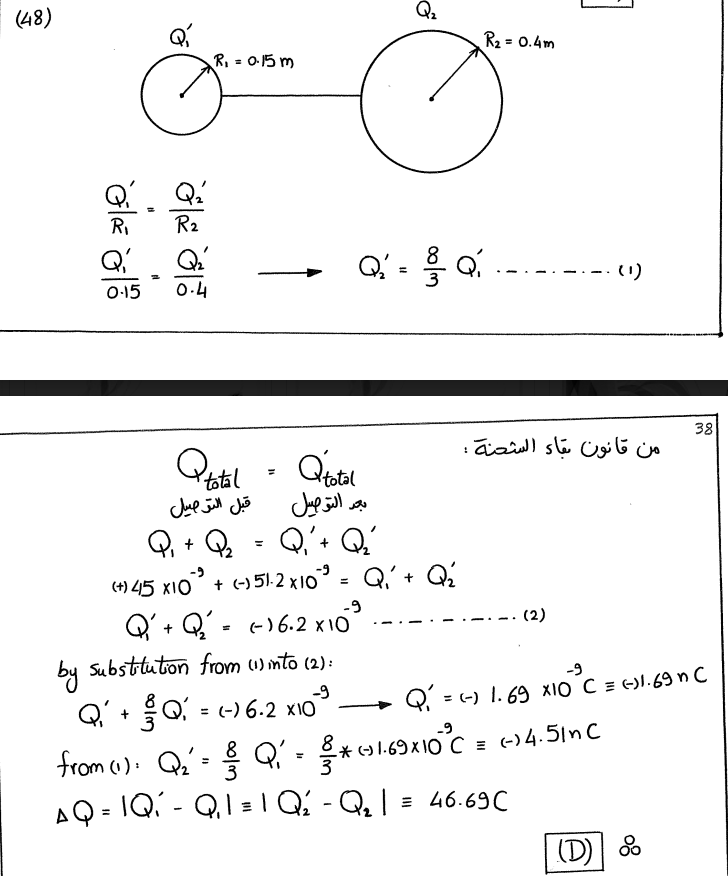 (48)
Q₁′
Q₂
R₁ = 0.15 m
R₂ = 0.4 m
Q₁′/R₁ = Q₂′/R₂
Q₁′/0.15 = Q₂′/0.4 → Q₂′ = 8/3 Q₁′ ............ (1)
38
من قانون بقاء الشحنة :
Q total = Q′ total
قبل التوصيل بعد التوصيل
Q₁ + Q₂ = Q₁′ + Q₂′
(+) 45 ×10⁻⁹ + (-) 51.2 ×10⁻⁹ = Q₁′ + Q₂′
Q₁′ + Q₂′ = (-) 6.2 ×10⁻⁹ ............ (2)
by substitution from (1) into (2):
Q₁′ + 8/3 Q₁′ = (-) 6.2 ×10⁻⁹ → Q₁′ = (-) 1.69 ×10⁻⁹ C ≡ (-) 1.69 n C
from (1): Q₂′ = 8/3 Q₁′ = 8/3 * (-) 1.69 ×10⁻⁹ C ≡ (-) 4.51 n C
ΔQ = |Q₁′ - Q₁| ≡ |Q₂′ - Q₂| ≡ 46.69 C
(D)